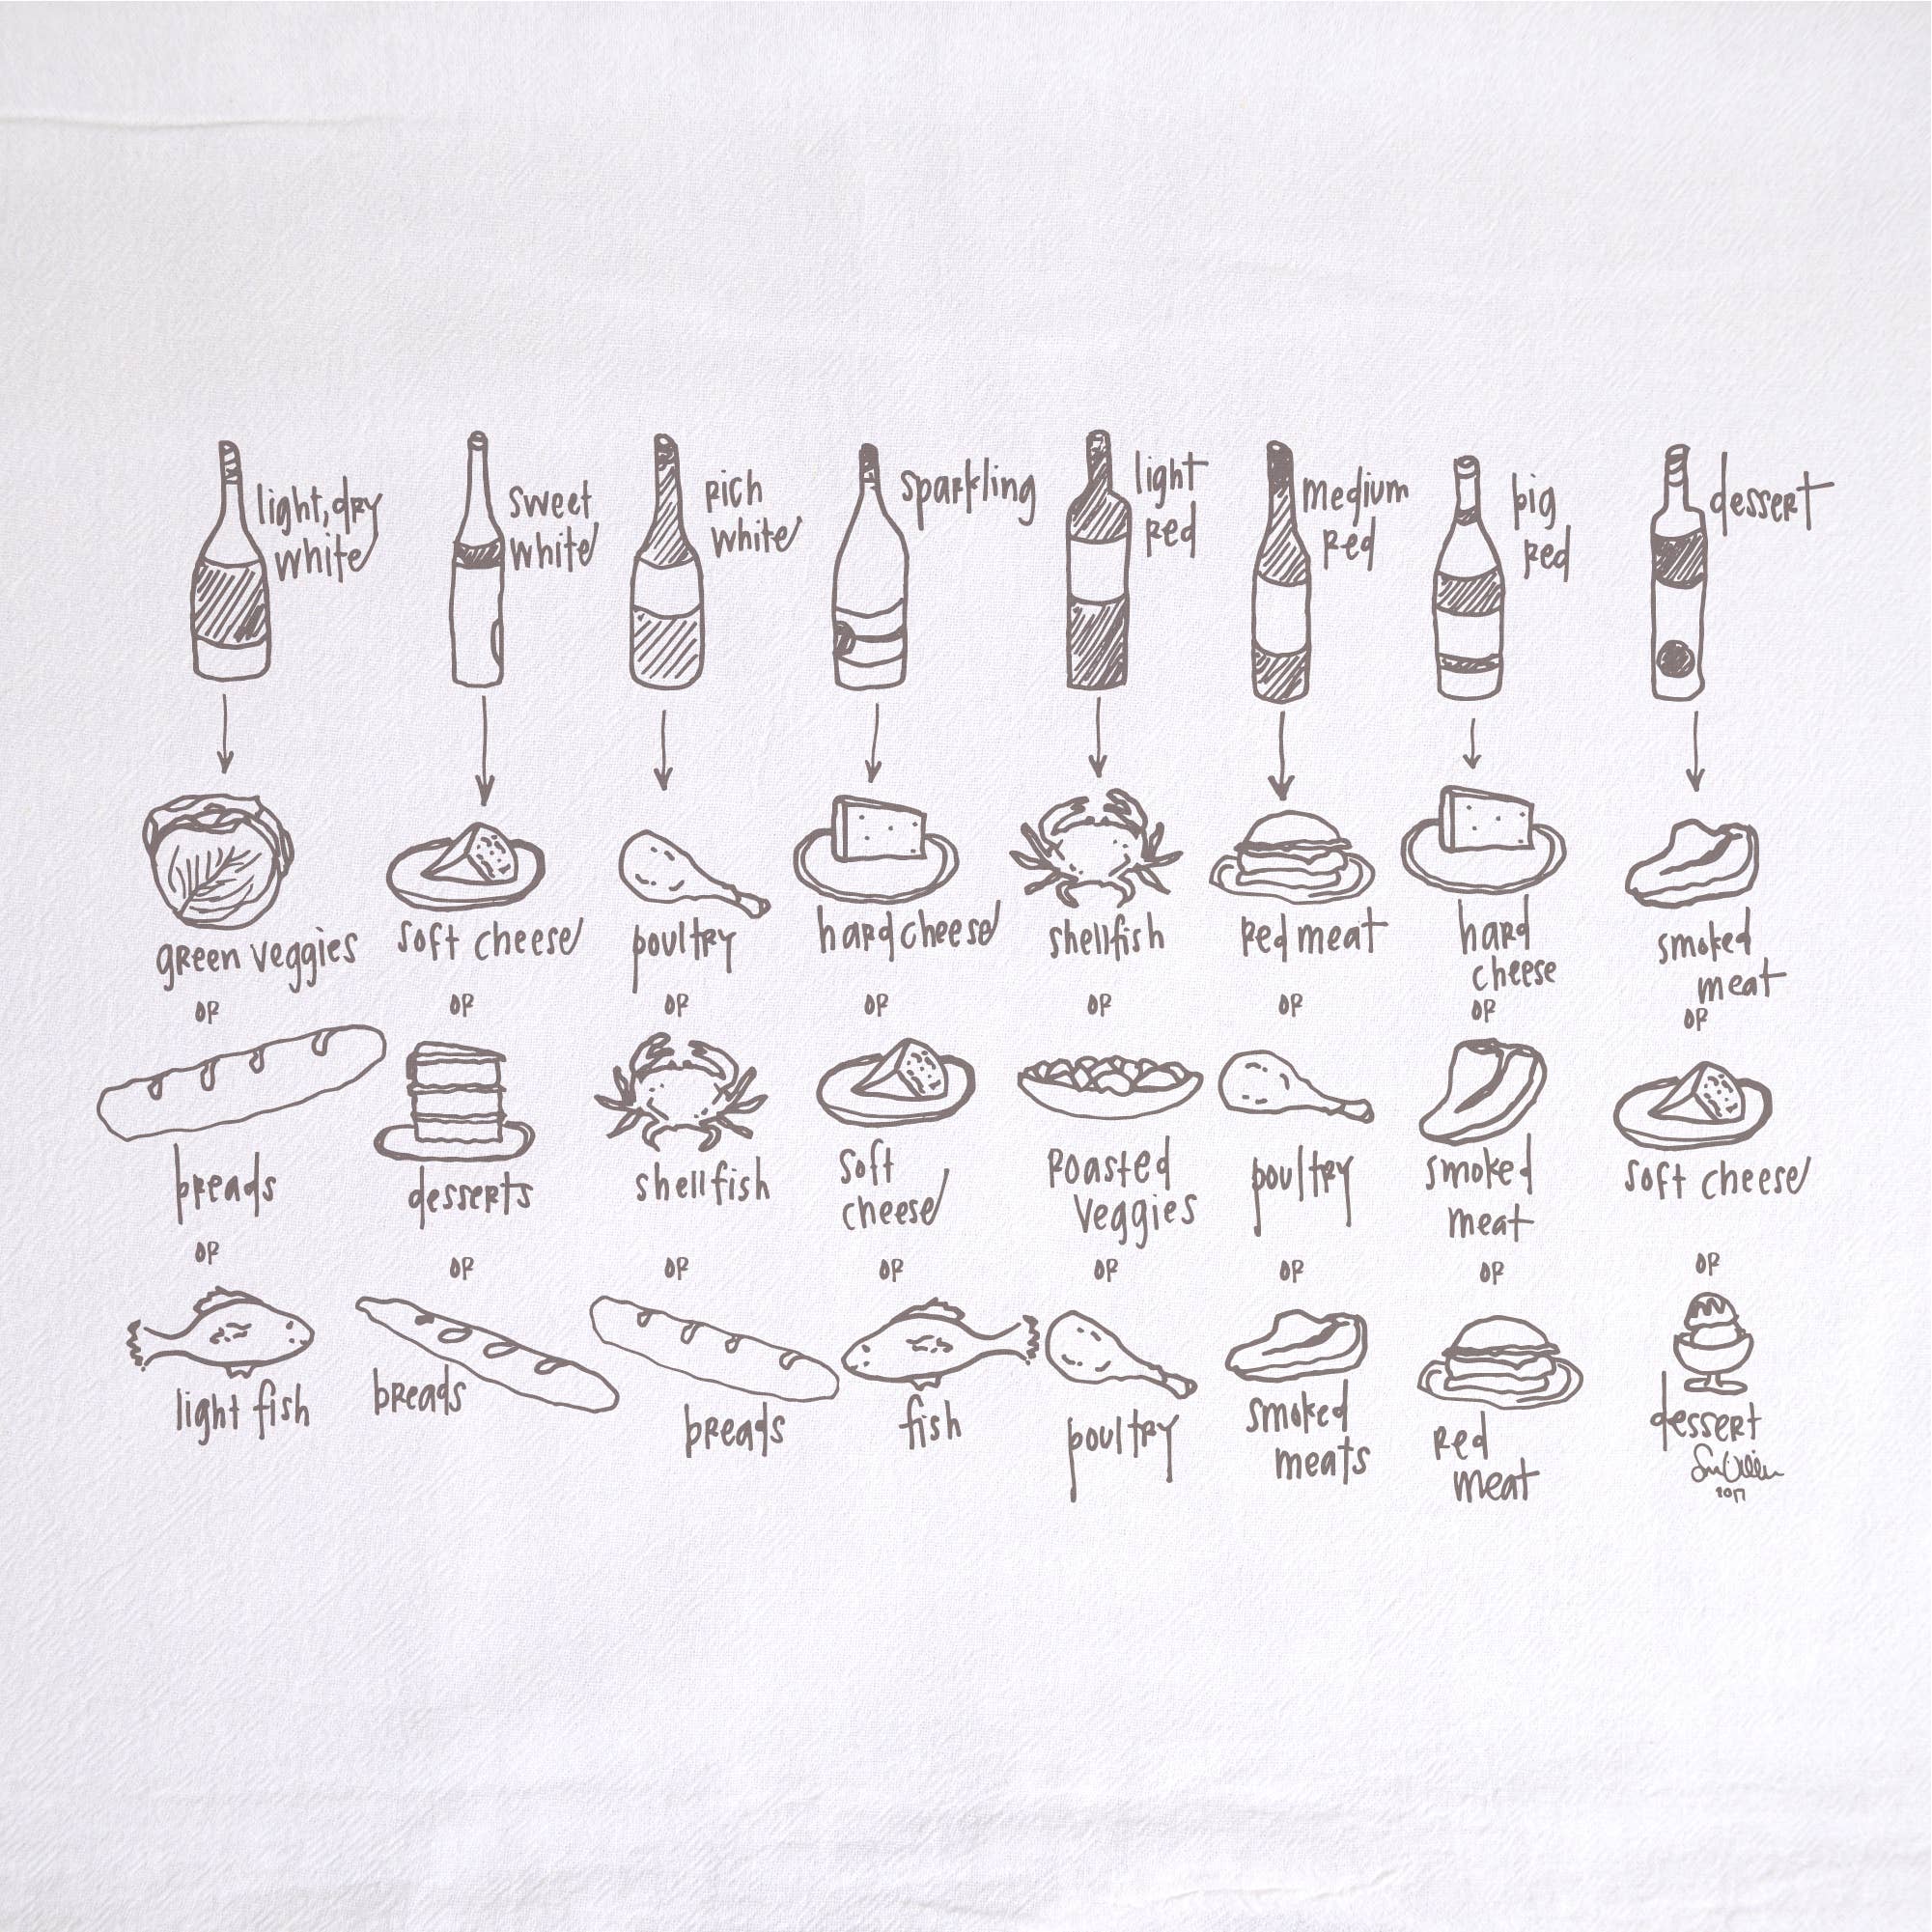 light, dry
white
green veggies
or
breads
or
light fish
sweet
white
soft cheese
or
desserts
or
breads
rich
white
poultry
or
shellfish
or
breads
sparkling
hard cheese
or
soft
cheese
or
fish
light
red
shellfish
or
roasted
veggies
or
poultry
medium
red
red meat
or
poultry
or
smoked
meats
big
red
hard
cheese
or
smoked
meat
or
red
meat
dessert
smoked
meat
or
soft cheese
or
dessert
2017